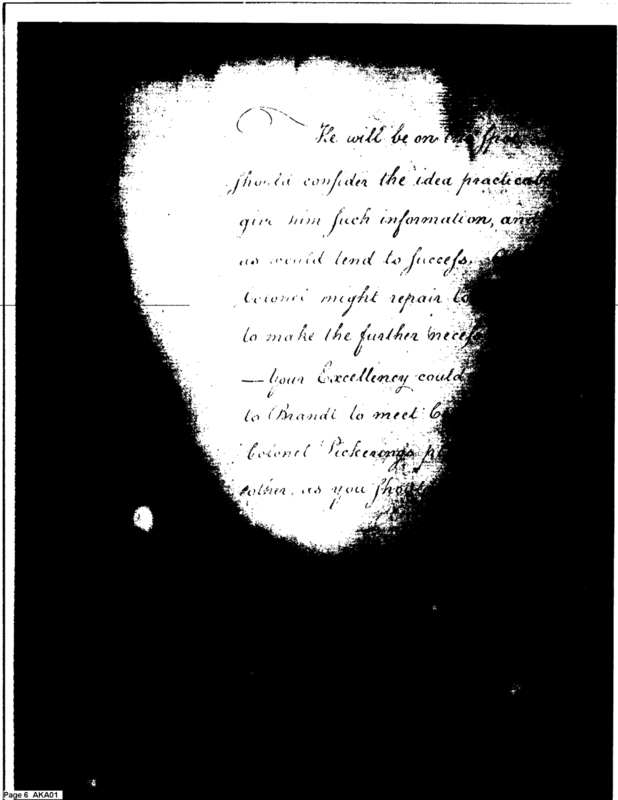 He will be on the
ſhould conſider the idea practicab
give him ſuch information, and
as would tend to ſucceſs.
Colonel might repair to
to make the further neceſ
— Your Excellency could
to Brandt to meet
Colonel Pickering's
other, as you ſhould
Page 6 AKA01